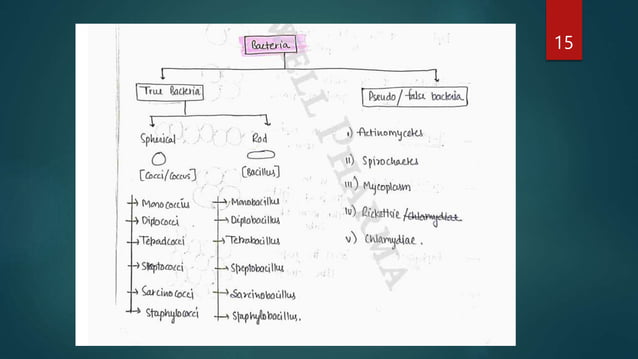 15
Bacteria
True Bacteria
Pseudo/false bacteria
Spherical
Rod
[Cocci/coccus]
[Bacillus]
Monococcius
Diplococci
Tepadcocci
Streptococci
Sarcinococci
Staphylococci
Monobacillus
Diplobacillus
Tetrabacillus
Speptobacillus
Sarcinobacillus
Staphylobacillus.
i) Actinomycetes
ii) Spirochaetes
iii) Mycoplasm
iv) Rickettsie/Chlamydiae
v) Chlamydiae.
WELL PHARMA